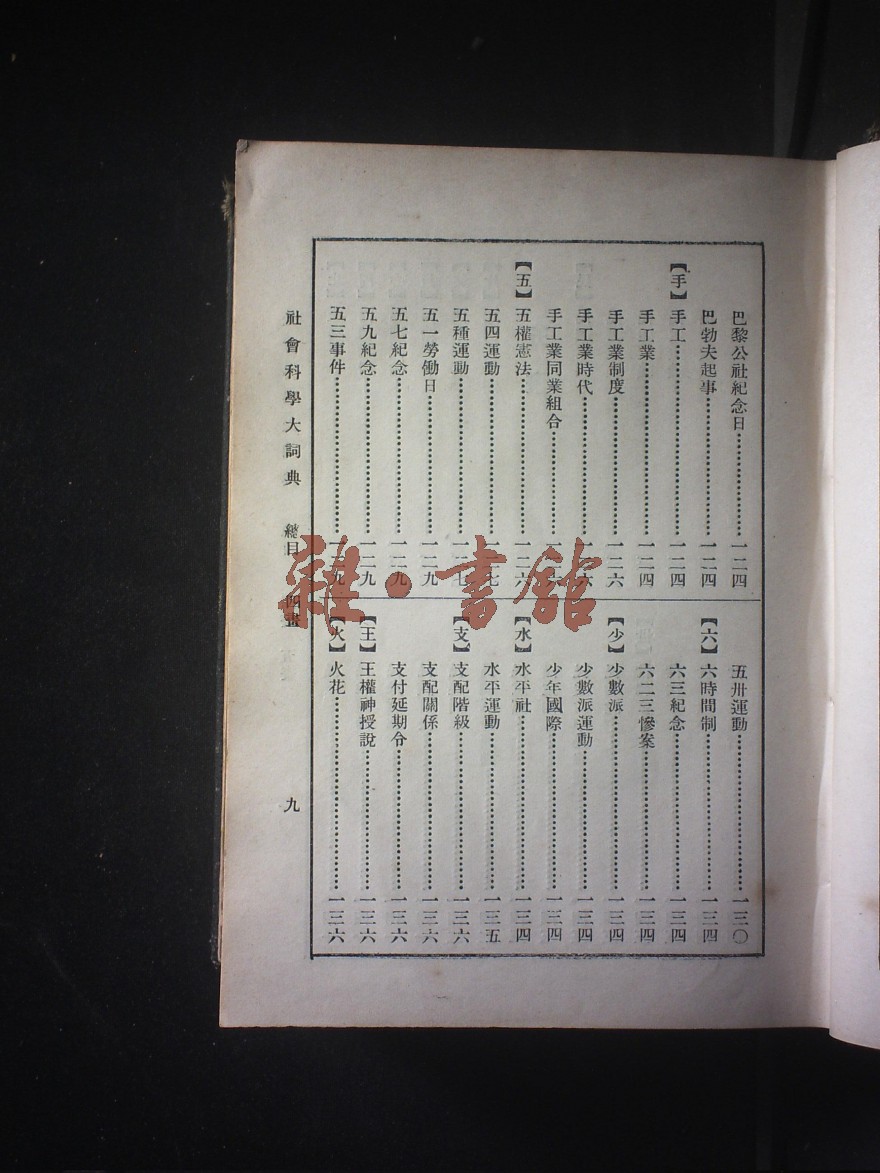 巴黎公社紀念日…一二四
巴勃夫起事…一二四
【手】手工…一二四
手工業…一二四
手工業制度…一二六
手工業時代…一二六
手工業同業組合…一二六
【五】五權憲法…一二六
五四運動…一二七
五種運動…一二七
五一勞働日…一二九
五七紀念…一二九
五九紀念…一二九
五三事件…一二九
五卅運動…一三〇
【六】六時間制…一三四
六三紀念…一三四
六二三慘案…一三四
【少】少數派…一三四
少數派運動…一三四
少年國際…一三四
【水】水平社…一三四
水平運動…一三五
【支】支配階級…一三六
支配關係…一三六
支付延期令…一三六
【王】王權神授說…一三六
【火】火花…一三六
社會科學大詞典 總目 四畫 九
雜·書館